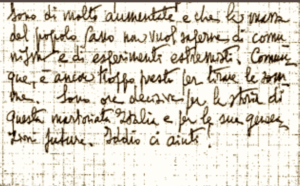 sono di molto aumentate e che la massa
del popolo basso non vuol saperne di comu-
nismo e di esperimenti estremisti. Comun-
que, è ancor troppo presto per tirare le som-
me. Sono ore decisive per la storia di
questa martoriata Italia e per le sue genera-
zioni future. Iddio ci aiuti!